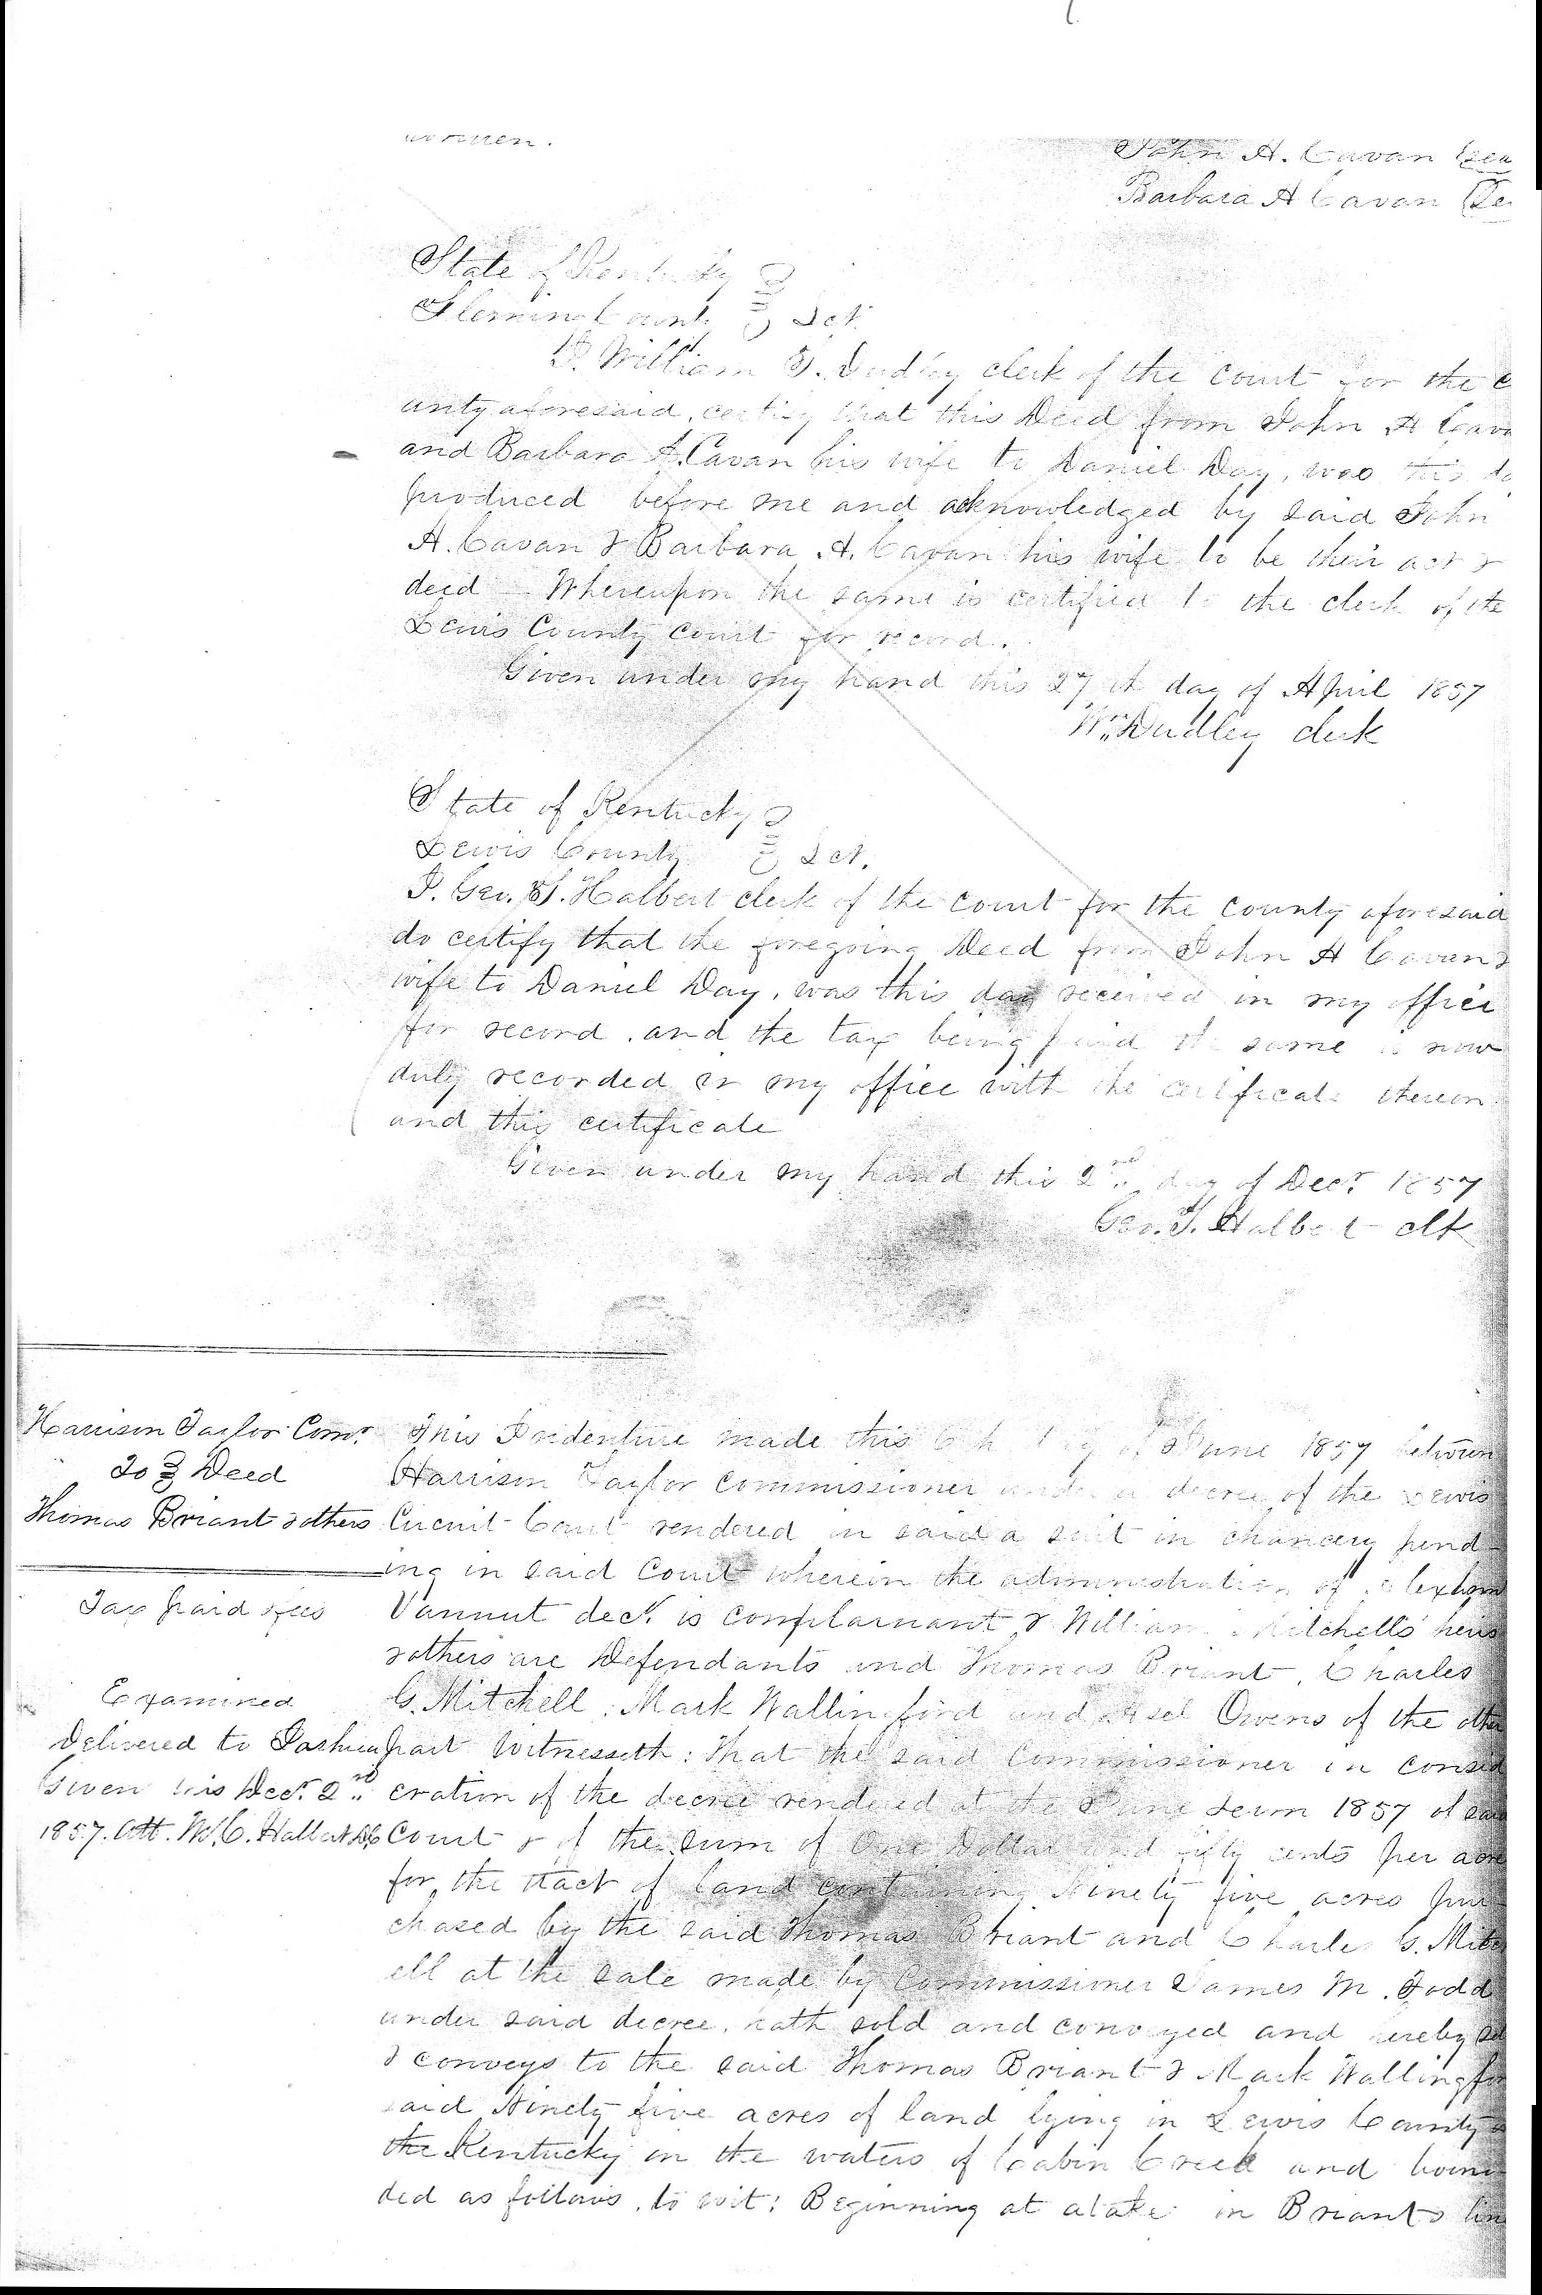 women.
John A. Cavan
Barbara A Cavan
State of Kentucky
Fleming County Sct.
I, William T. Dudley clerk of the court for the c
ounty aforesaid, certify that this Deed from John A Cava
and Barbara A. Cavan his wife to Daniel Day, was this da
produced before me and acknowledged by said John
A. Cavan & Barbara A. Cavan his wife to be their act &
deed Whereupon the same is certified to the clerk of the
Lewis County Court for record.
Given under my hand this 27th day of April 1857
Wm Dudley clerk
State of Kentucky
Lewis County Sct.
I, Geo. T. Halbert clerk of the court for the county aforesaid
do certify that the foregoing Deed from John A Cavan &
wife to Daniel Day, was this day received in my office
for record, and the tax being paid the same is now
duly recorded in my office with the certificate thereon
and this certificate
Given under my hand this 2nd day of Decr 1857
Geo. T. Halbert clk
Harrison Taylor Comr.
To Deed
Thomas Briant & others
Tax paid & fees
Examined
Delivered to Joshua
Given this Decr. 2nd
1857. Att. W.C. Halbert DC
This Indenture made this 6th day of June 1857 between
Harrison Taylor Commissioner under a decree of the Lewis
Circuit Court rendered in said a suit in chancery pend-
ing in said Court wherein the administration of
Vannut decd. is complainant & William Mitchells heirs
& others are Defendants and Thomas Briant, Charles
G. Mitchell, Mark Wallingford and Asel Owens of the other
part Witnesseth: That the said Commissioner in consid
eration of the decree rendered at the June term 1857 of said
Court & of the sum of One Dollar and fifty cents per acre
for the tract of land containing Ninety five acres pur-
chased by the said Thomas Briant and Charles G. Mitch
ell at the sale made by Commissioner James M. Todd
under said decree, hath sold and conveyed and hereby sel
& conveys to the said Thomas Briant & Mark Wallingfor
said Ninety five acres of land lying in Lewis County
the Kentucky on the waters of Cabin Creek and boun-
ded as follows, to wit: Beginning at a stake in Briants lin